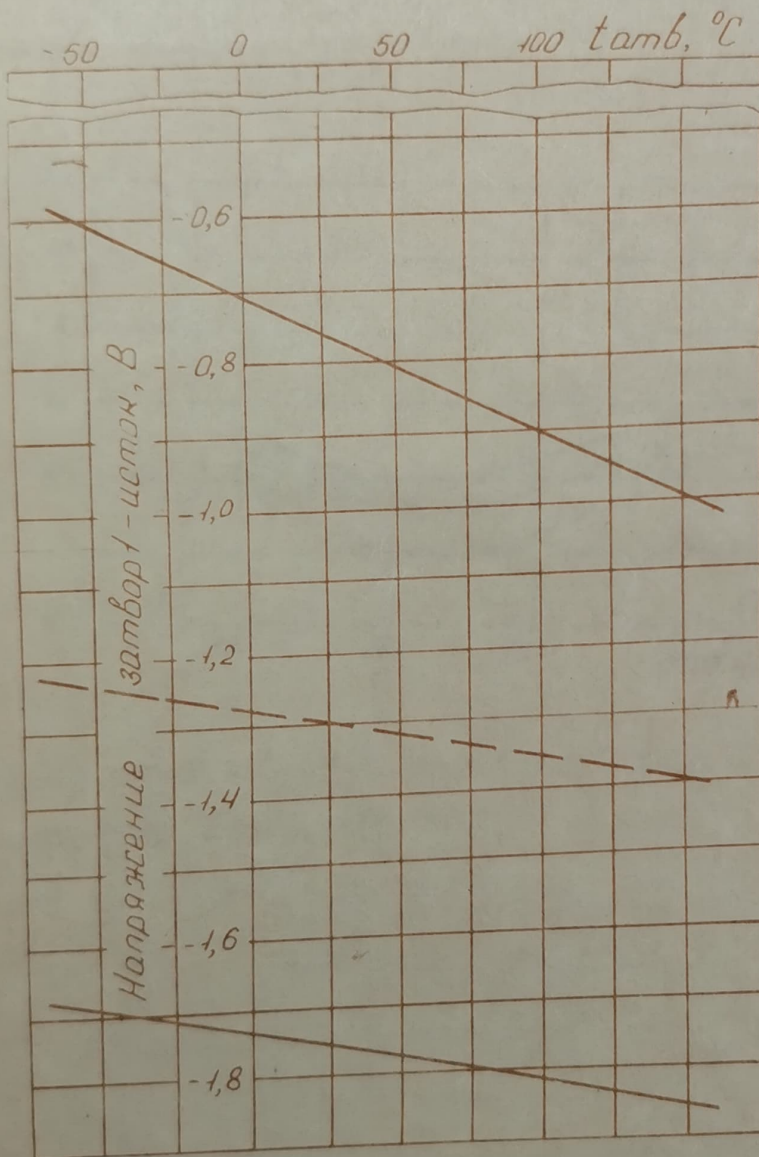 -50 0 50 100 tamb, °C
-0,6
-0,8
-1,0
-1,2
-1,4
-1,6
-1,8
Напряжение затвор1-исток, В